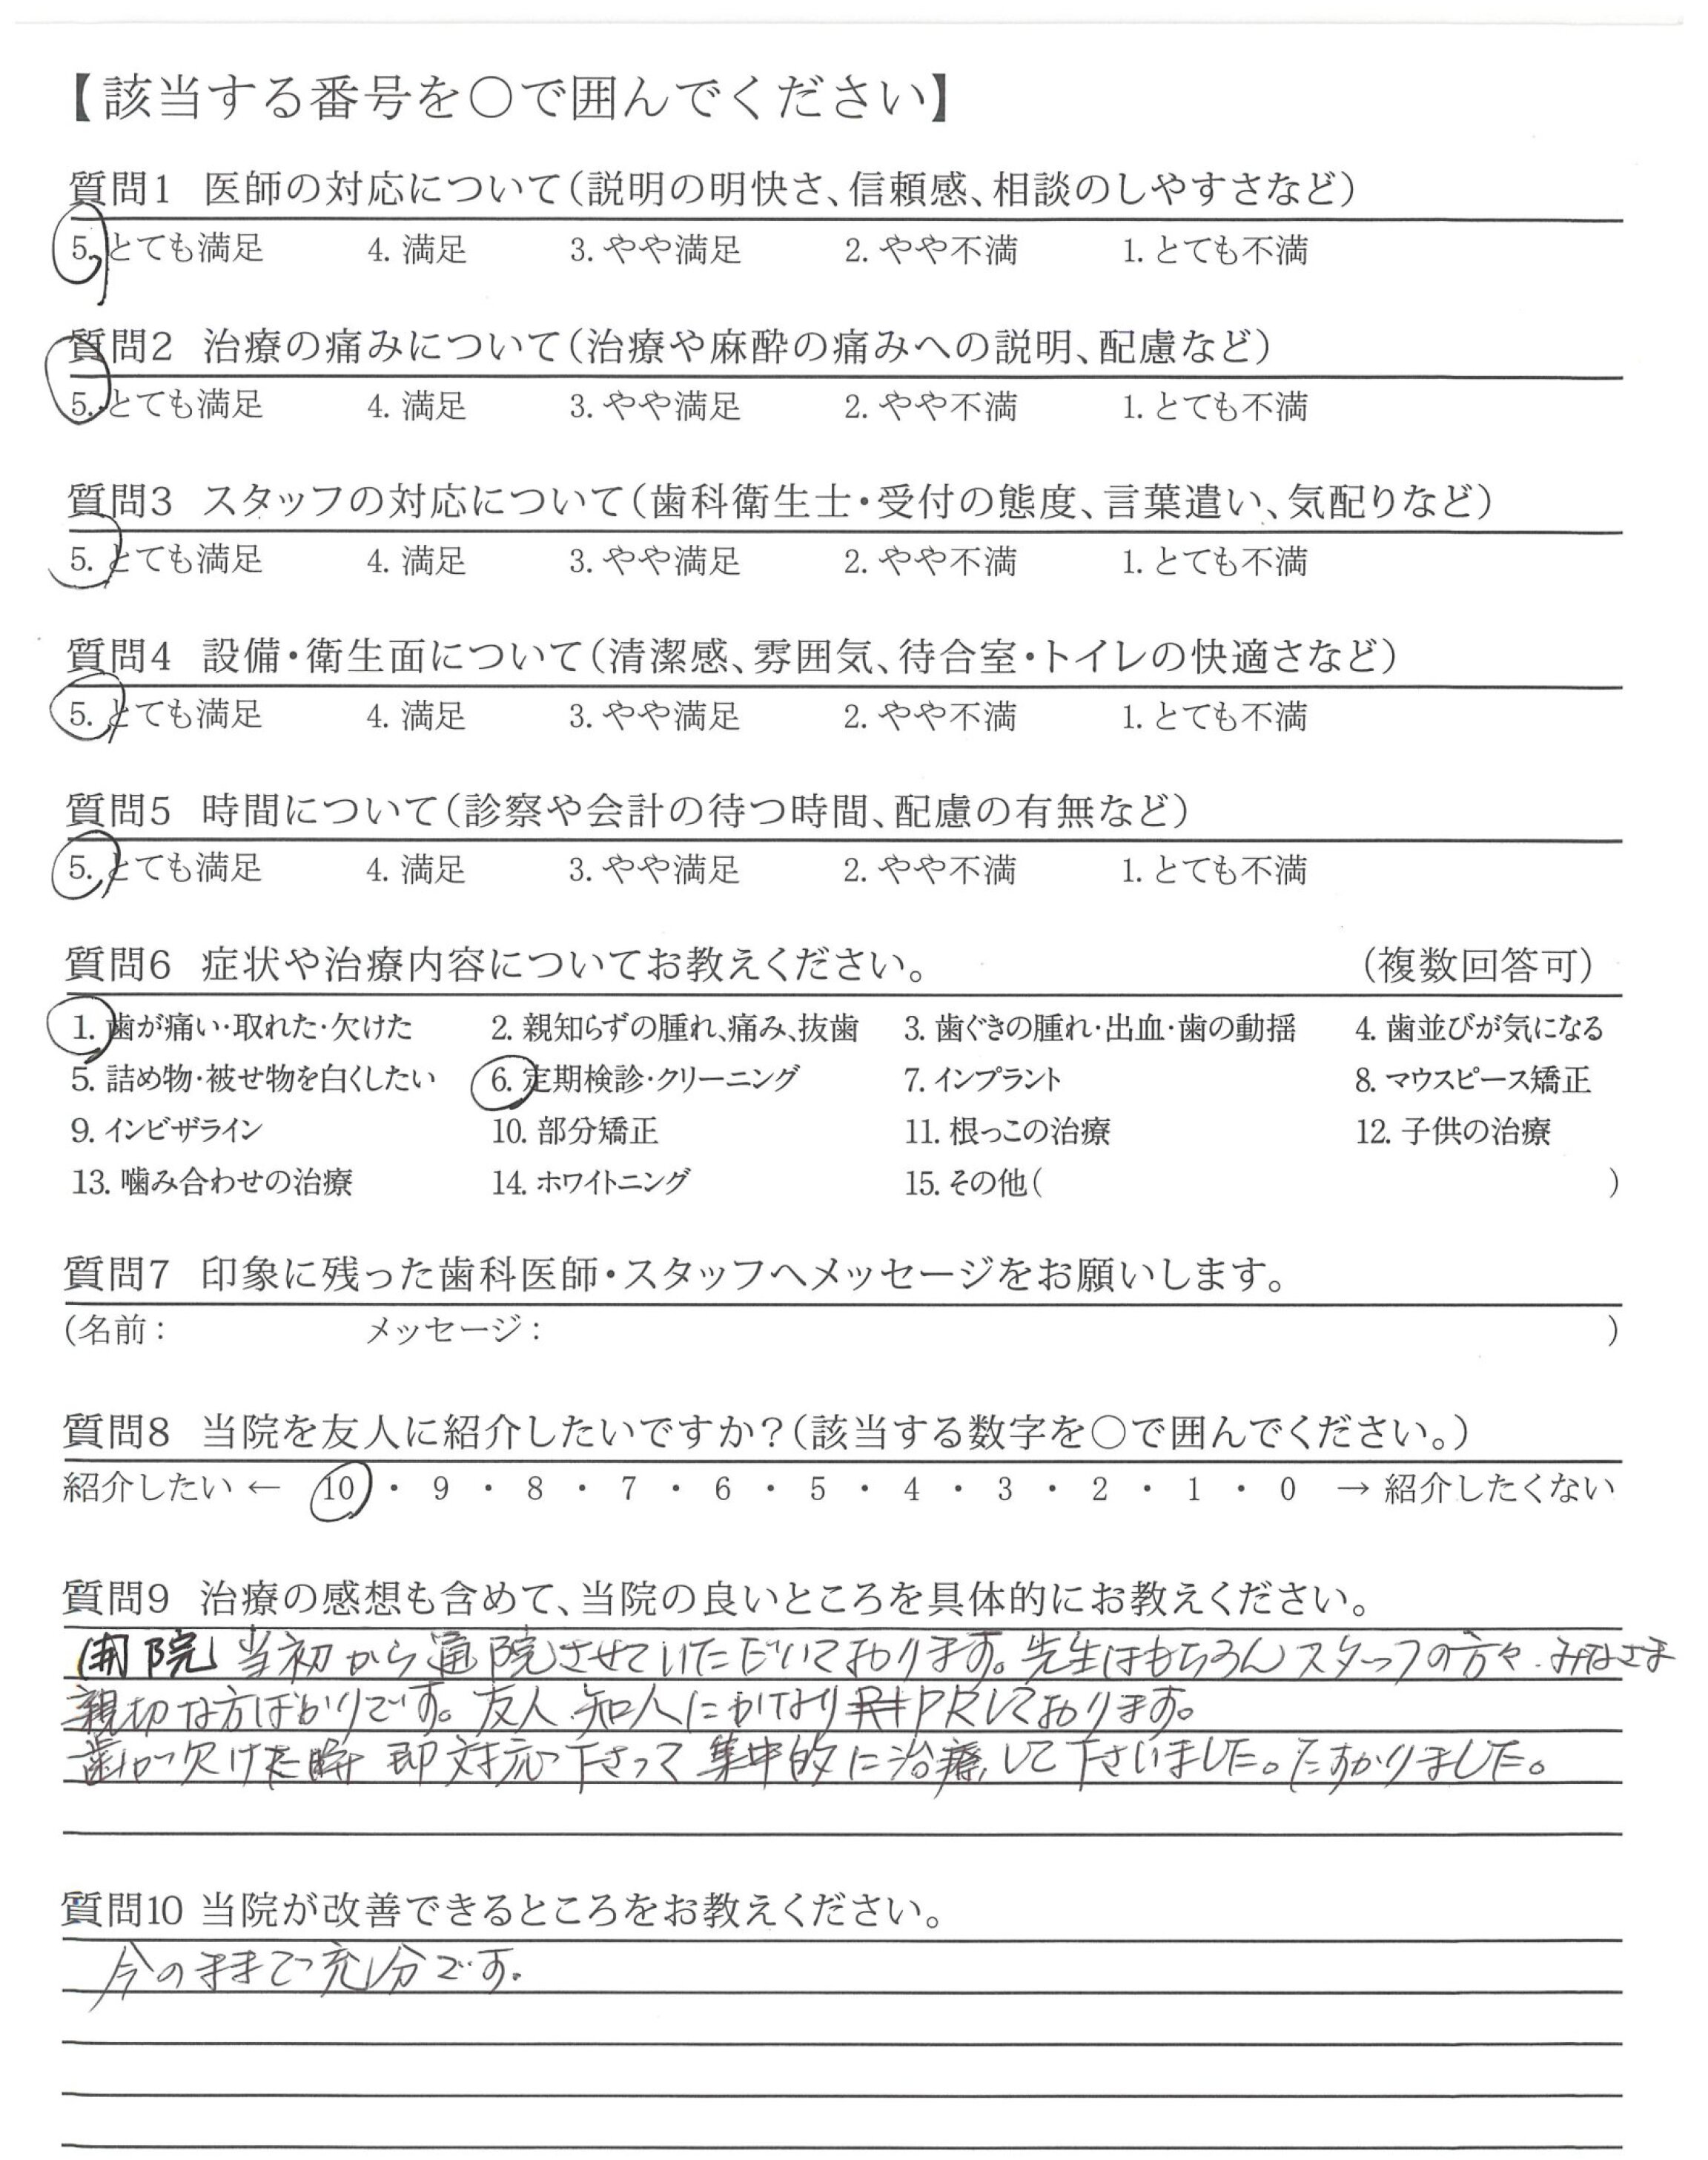 【該当する番号を〇で囲んでください】
質問1 医師の対応について(説明の明快さ、信頼感、相談のしやすさなど)
5. とても満足 4. 満足 3. やや満足 2. やや不満 1. とても不満
質問2 治療の痛みについて(治療や麻酔の痛みへの説明、配慮など)
5. とても満足 4. 満足 3. やや満足 2. やや不満 1. とても不満
質問3 スタッフの対応について(歯科衛生士・受付の態度、言葉遣い、気配りなど)
5. とても満足 4. 満足 3. やや満足 2. やや不満 1. とても不満
質問4 設備・衛生面について(清潔感、雰囲気、待合室・トイレの快適さなど)
5. とても満足 4. 満足 3. やや満足 2. やや不満 1. とても不満
質問5 時間について(診察や会計の待つ時間、配慮の有無など)
5. とても満足 4. 満足 3. やや満足 2. やや不満 1. とても不満
質問6 症状や治療内容についてお教えください。 (複数回答可)
1. 歯が痛い・取れた・欠けた 2. 親知らずの腫れ、痛み、抜歯 3. 歯ぐきの腫れ・出血・歯の動揺 4. 歯並びが気になる
5. 詰め物・被せ物を白くしたい 6. 定期検診・クリーニング 7. インプラント 8. マウスピース矯正
9. インビザライン 10. 部分矯正 11. 根っこの治療 12. 子供の治療
13. 噛み合わせの治療 14. ホワイトニング 15. その他( )
質問7 印象に残った歯科医師・スタッフへメッセージをお願いします。
(名前: メッセージ: )
質問8 当院を友人に紹介したいですか?(該当する数字を〇で囲んでください。)
紹介したい ← 10 ・ 9 ・ 8 ・ 7 ・ 6 ・ 5 ・ 4 ・ 3 ・ 2 ・ 1 ・ 0 → 紹介したくない
質問9 治療の感想も含めて、当院の良いところを具体的にお教えください。
開院当初から通院させていただいております。先生はもちろんスタッフの方々、みなさま
親切な方ばかりです。友人、知人にかなりPRしております。
歯が欠けた時即対応下さって集中的に治療して下さいました。たすかりました。
質問10 当院が改善できるところをお教えください。
今のままで充分です。